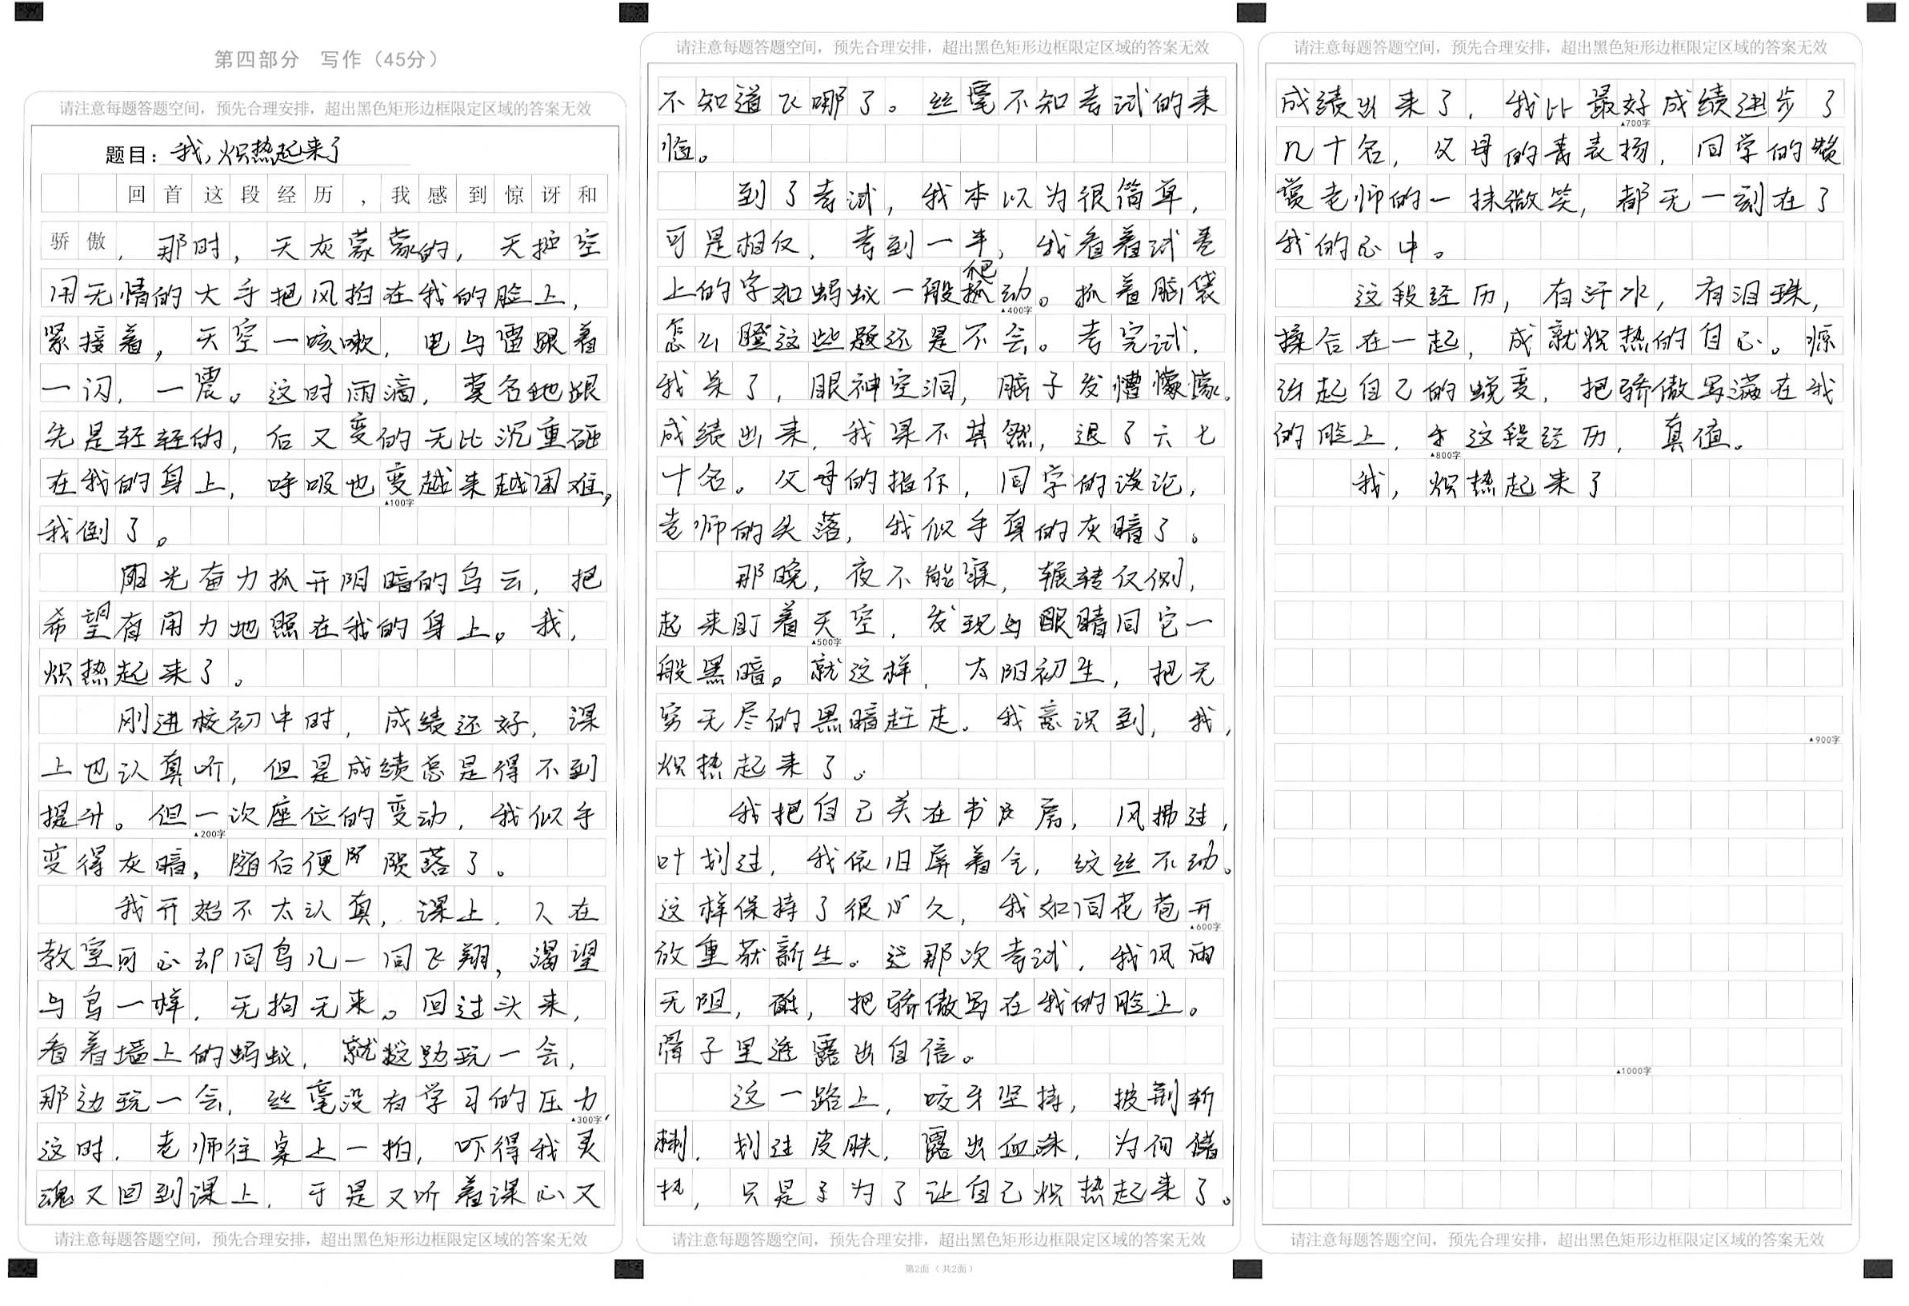 第四部分 写作（45分）
请注意每题答题空间，预先合理安排，超出黑色矩形边框限定区域的答案无效
题目：我，炽热起来了
回首这段经历，我感到惊讶和
骄傲，那时，天灰蒙蒙的，天空
用无情的大手把风拍在我的脸上，
紧接着，天空一咳嗽，电与雷跟着
一闪，一震。这时雨滴，莫名地跟
先是轻轻的，后又变的无比沉重砸
在我的身上，呼吸也变越来越困难，
▲100字
我倒了。
阳光奋力抓开阴暗的乌云，把
希望有用力地照在我的身上。我，
炽热起来了。
刚进校初中时，成绩还好，课
上也认真听，但是成绩总是得不到
提升。但一次座位的变动，我似乎
▲200字
变得灰暗，随后便陨落了。
我开始不太认真，课上，人在
教室可心却同鸟儿一同飞翔，渴望
与鸟一样，无拘无来。回过头来，
看着墙上的蚂蚁，就这边玩一会，
那边玩一会，丝毫没有学习的压力，
▲300字
这时，老师往桌上一拍，吓得我灵
魂又回到课上，于是又听着课心又
请注意每题答题空间，预先合理安排，超出黑色矩形边框限定区域的答案无效
请注意每题答题空间，预先合理安排，超出黑色矩形边框限定区域的答案无效
不知道飞哪了。丝毫不知考试的来
临。
到了考试，我本以为很简单，
可是相仅，考到一半，我看着试卷
上的字如蚂蚁一般爬动。抓着脑袋
▲400字
怎么瞪这些题还是不会。考完试，
我呆了，眼神空洞，脑子发懵懞懞。
成绩出来，我果不其然，退了六七
十名。父母的指作，同学的谈论，
老师的失落，我似乎真的灰暗了。
那晚，夜不能寐，辗转仅侧，
起来盯着天空，发现与眼睛同它一
▲500字
般黑暗。就这样，太阳初生，把无
穷无尽的黑暗赶走。我意识到，我，
炽热起来了。
我把自己关在书房，风拂过，
叶划过，我依旧屏着气，纹丝不动。
这样保持了很久，我如同花苞开
▲600字
放重获新生。这那次考试，我风雨
无阻，把骄傲写在我的脸上。
骨子里透露出自信。
这一路上，咬牙坚持，披荆斩
棘，划过皮肤，露出血珠，为何
只是为了让自己炽热起来了。
请注意每题答题空间，预先合理安排，超出黑色矩形边框限定区域的答案无效
第2面（共2面）
请注意每题答题空间，预先合理安排，超出黑色矩形边框限定区域的答案无效
成绩出来了，我比最好成绩进步了
▲700字
几十名，父母的表扬，同学的赞
赏老师的一抹微笑，都无一刻在了
我的心中。
这段经历，有汗水，有泪珠，
揉合在一起，成就炽热的自心。惊
讶起自己的蜕变，把骄傲写满在我
的脸上，这段经历，真值。
▲800字
我，炽热起来了
▲900字
▲1000字
请注意每题答题空间，预先合理安排，超出黑色矩形边框限定区域的答案无效